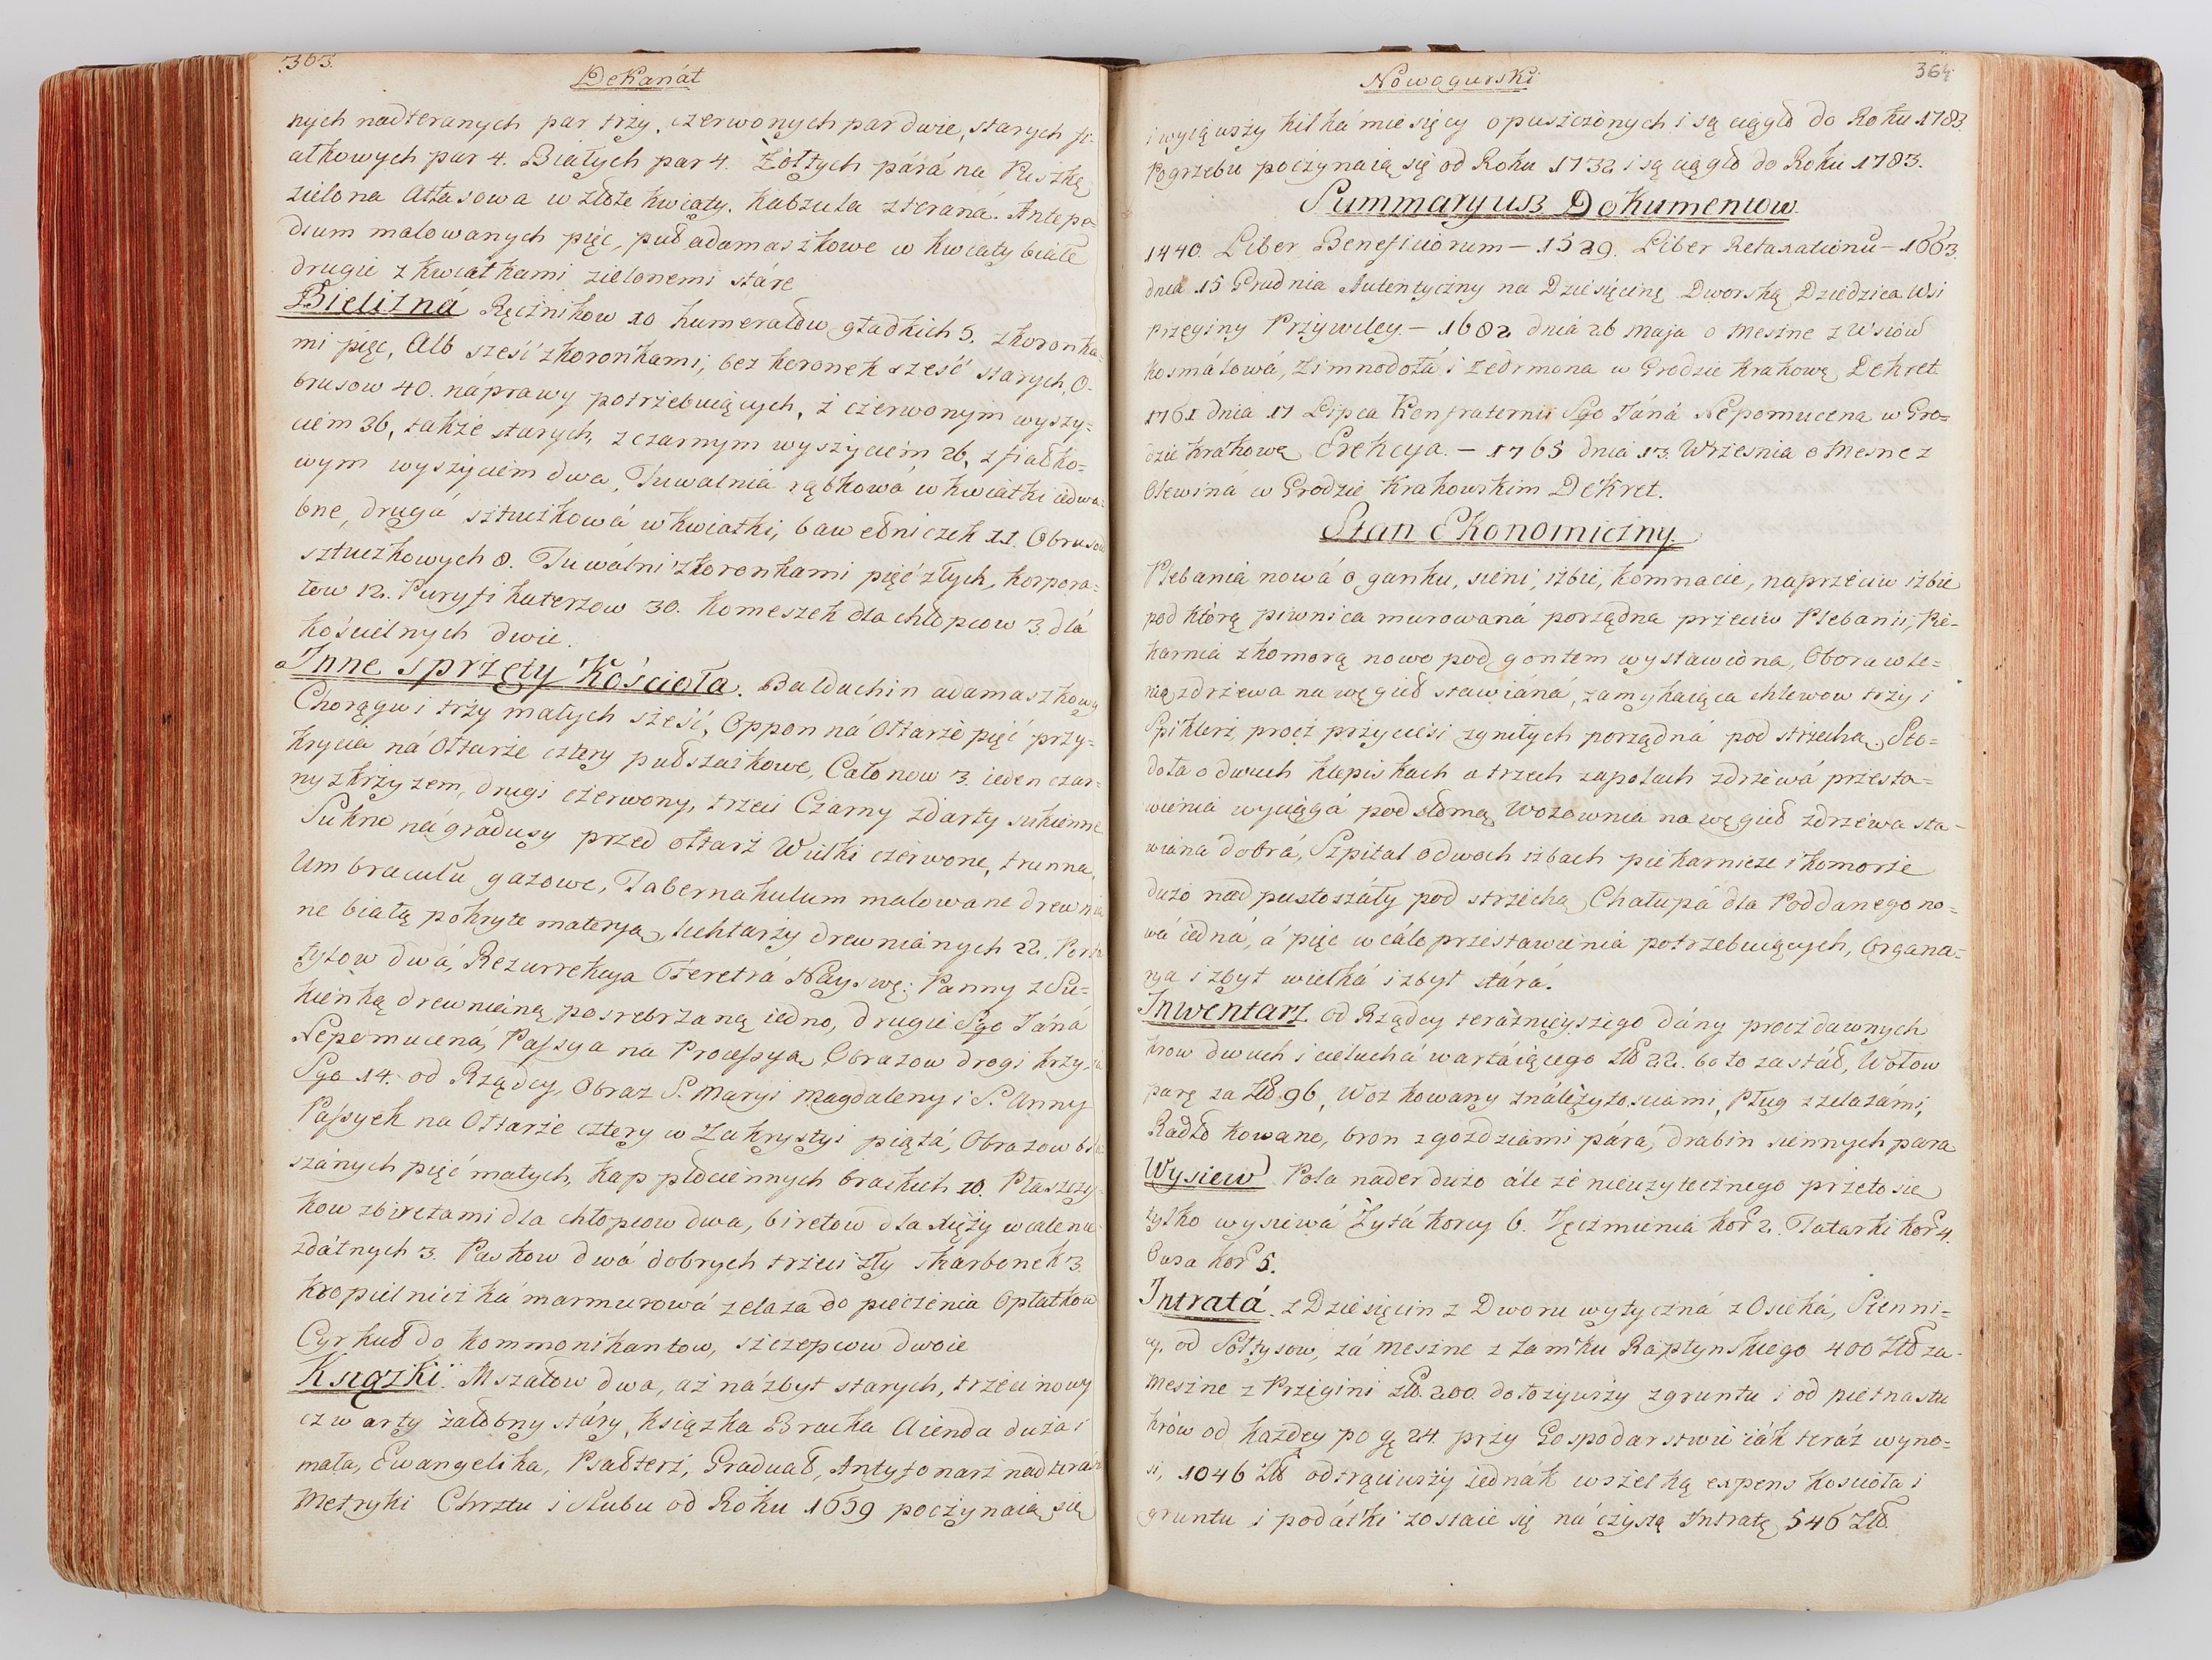 363.
Dekanát
nych nadteranych par trzy, czerwonych par dwie, starych fi-
ałkowych par 4. Białych par 4. Żółtych párá na Puszkę
zielona Atłasowa w złote kwiaty. Kabzula zteraná. Antepe-
dium malowanych pięc, puł adamaszkowe w kwiaty białe
drugie z kwiatkami zielonemi stáre
Bielizná Ręcznikow 10 humerałow gładkich 5. z koronka-
mi pięc, Alb sześć z koronkami, bez koronek sześć starych, O-
brusow 40. náprawy potrzebuiących, z czerwonym wyszy-
ciem 36, także starych, z czarnym wyszyciem 26, z fiałko-
wym wyszyciem dwa, Tuwalnia rąbkowá w kwiatki iedwa-
bne, drugá sztuczkowá w kwiatki, bawełniczek 11. Obrusow
sztuczkowych 8. Tuwalni z koronkami pięć złych, korpora-
łow 12. Puryfikaterzow 30. Komeszek dla chłopcow 3. dlá
kościelnych dwie.
Inne sprzęty Kościoła. Baldachin adamaszkowy
Chorągwi trzy małych sześć, Oppon ná Ołtarze pięć przy-
krycia ná Ołtarze cztery pułszaikowe, Całonow 3. ieden czar-
ny z krzyzem, drugi czerwony, trzeci Czarny zdarty sukienne
Sukno ná grádusy przed ołtarz Wielki czerwone, trunna,
Umbraculu gazowe, Tabernakulum malowane drewnia
ne białą pokryte materyą, lichtarzy drewniánych 22. Porta
tylow dwá, Rezurrekcya Feretrá Náyswę: Panny z Su-
kienką drewnianą posrebrzaną iedno, drugie Sgo Jáná
Nepomucená, Passya na Processyą, Obrazow drogi krzy-
Sgo 14. od Rządcy, Obraz S. Maryi Magdaleny i S. Anny
Passyek na Ołtarze cztery w Zakrystyi piątá, Obrazow bla
szánych pięć małych, kap płociennych brackich 10. Płaszczy-
kow z biretami dla chłopcow dwa, biretow dla xięży wcale nie-
zdátnych 3. Paskow dwá dobrych trzeci zły skárbonek 3.
kropielniczká marmurowá zelaza do pieczenia Opłatkow
Cyrkuł do kommonikantow, szczepcow dwoie
Ksiązki. Mszałow dwa, aż názbyt starych, trzeci nowy
czwarty żałobny stáry, książka Bracka Aienda duża i
mała, Ewangelika, Psałterz, Graduał, Antyfonarz nadterá
Metryki Chrztu i Slubu od Roku 1659 poczynaią się
Nowogurski
364
i wyiąwszy kilká miesięcy opuszczonych i są ciągło do Roku 1783.
Pogrzebu poczynaią się od Roku 1732 i są ciągło do Roku 1783.
Summaryusz Dokumentow.
1440. Liber Beneficiorum – 1529. Liber Retaxationũ – 1663.
dnia 15 Grudnia Autentyczny na Dziesięcinę Dworską Dziedzica Wsi
Przeginy Przywiley. – 1682 dniá 26 Maja o Meszne z Wsiow
Kosmálowá, Zimnodołá i Zedrmana w Grodzie Krakowꝫ Dekret.
1761 dnia 17 Lipca Konfraternii Sgo Jáná Nepomucena w Gro-
dzie Krakowꝫ Erekcya. – 1765 dnia 13. Wrzesnia o Mesne z
Olewiná w Grodzie Krakowskim Dekret.
Stan Ekonomiczny
Plebania nowá o ganku, sieni, izbie, komnacie, naprzeciw izbie
pod którą piwnica murowaná porządna przeciw Plebanii, Pie-
karnia z komorą nowo pod gontem wystawiona, Obora wle-
nią z drzewa na węgieł stawiáná, zamykaiąca chlewow trzy i
Spiklerz, procz przyciesi zgniłych porządná pod strzechą, Sto-
doła o dwuch klepiskach a trzech zapolach z drzewá przesta-
wienia wyciągá pod słomą, Wozownia na węgieł z drzewa sta-
wiana dobrá, Szpital o dwoch izbach piekarnicze i komorze
dużo nadpustoszáły pod strzechą, Chałupá dla Poddanego no-
wá iedná, á pięc wcále przestawienia potrzebuiących, Organa-
rya i zbyt wielká i zbyt stárá.
Inwentarz od Rządcy teraźnieyszego dány procz dawnych
krow dwuch i cieluchá wartáiącego Złł 22. bo to zastał, Wołow
parę za Złł 96, Woz kowany z náleżytosciami, Pług z zelazámi,
Radło kowane, bron z goździami párá, drabin siennych para
Wysiew Pola nader dużo ále że nieużytecznego przeto się
tylko wysiewá Żytá korcy 6. Jęczmienia kor 2. Tatarki kor 4.
Owsa kor 5.
Intratá. z Dziesięcin z Dworu wytyczná z Osieká, Sienni-
cy, od Sołtysow, zá meszne z Zamku Rapsztynskiego 400 Złł za-
meszne z Przegini Złł. 200. dołożywszy z gruntu i od pietnastu
krów od każdey po gę 24. przy Gospodarstwie iák teráz wyno-
si, 1046 Złł odtrąciwszy iednák wszelką expens kościoła i
gruntu i podátki zostaie się ná czystą Intratę 546 Złł.